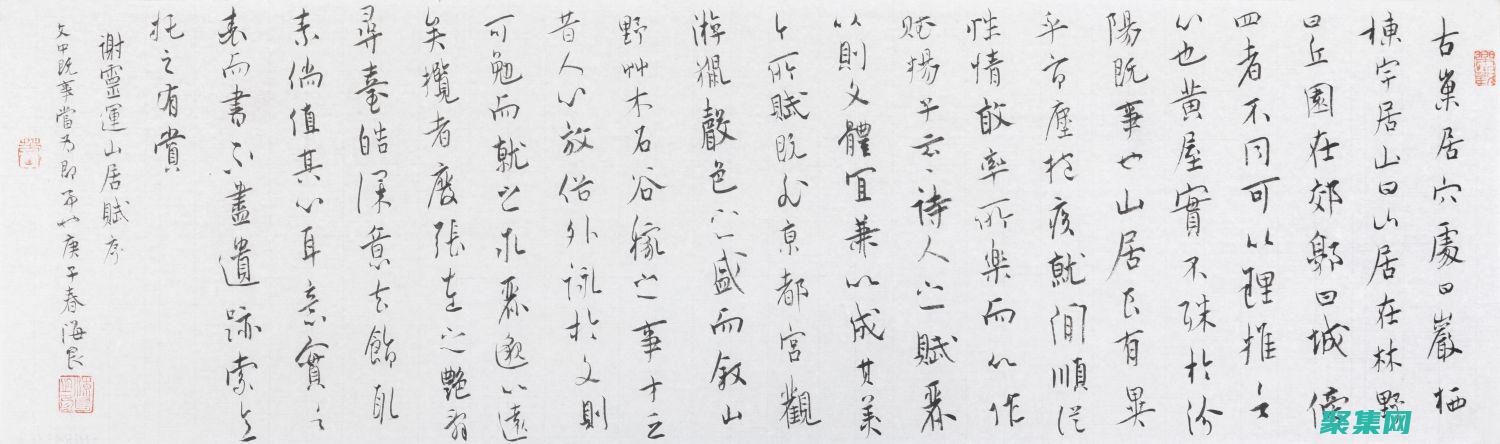 古巢居穴處曰巖栖
棟宇居山曰山居在林野
曰丘園在郊郭曰城傍
四者不同可以理推言
心也黄屋實不殊於汾
陽既事也山居良有異
乎市廛抱疾就閒順從
性情敢率所樂而以作
賦揚子云云詩人之賦麗
以則文體宜兼以成其美
今所賦既非京都宮觀
遊獵聲色之盛而敘山
野艸木石谷稼之事才乏
昔人心放俗外詠於文則
可勉而就之求麗邈以遠
矣攬者廢張左之艷辭
尋臺皓深意去飾取
素倘值其心耳意實言
表而書不盡遺跡索意
托之有賞
謝靈運山居賦序
文中既事當为即事 庚子春海良
聚集网